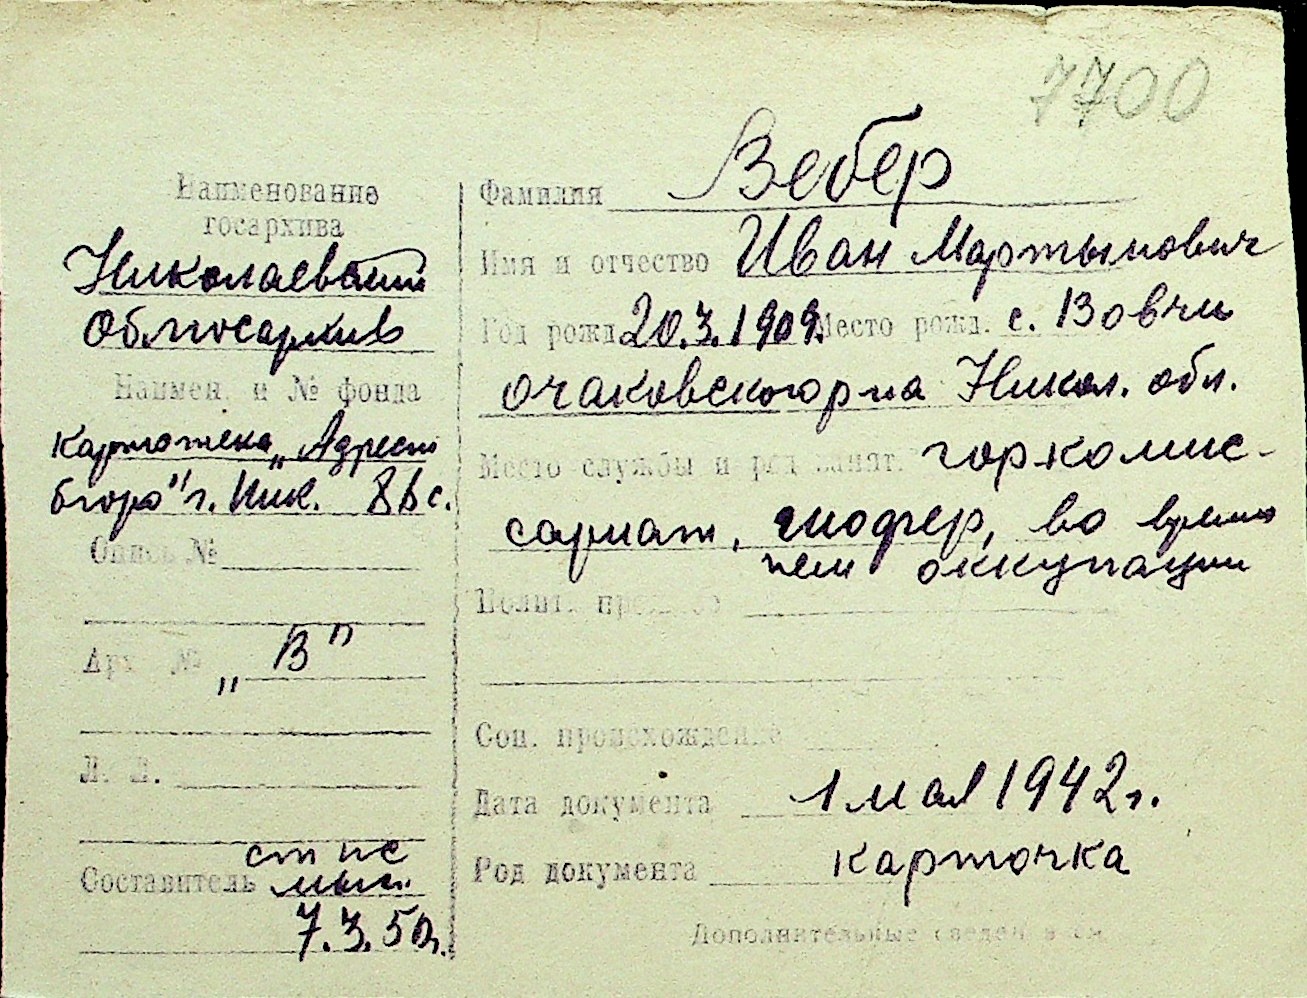 7700
Наименование
госархива
Николаевский
Облгосархив
Наимен. и № фонда
Картотека „Адресн
бюро" г. Ник.
Опись №
Арх. №
„В"
Л. Л.
Составитель ст нс
7.3.50г.
Фамилия Вебер
Имя и отчество Иван Мартынович
Год рожд 20.3.1909. Место рожд. с.
очаковского р-на Никол. обл.
Место службы и род занят. горкомис-
сариат, шофер, во время
нем оккупации
Полит. прошлое
Соц. происхождение
Дата документа 1 мая 1942 г.
Род документа карточка
Дополнительные сведения см